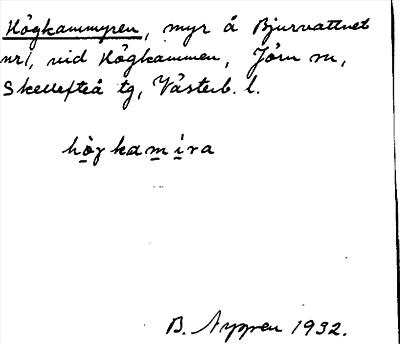 Högkammyren, myr å Bjurvattnet
nr 1, vid Högkammen, Jörn sn,
Skellefteå tg, Västerb. l.
hògkamira
B. Nygren 1932.